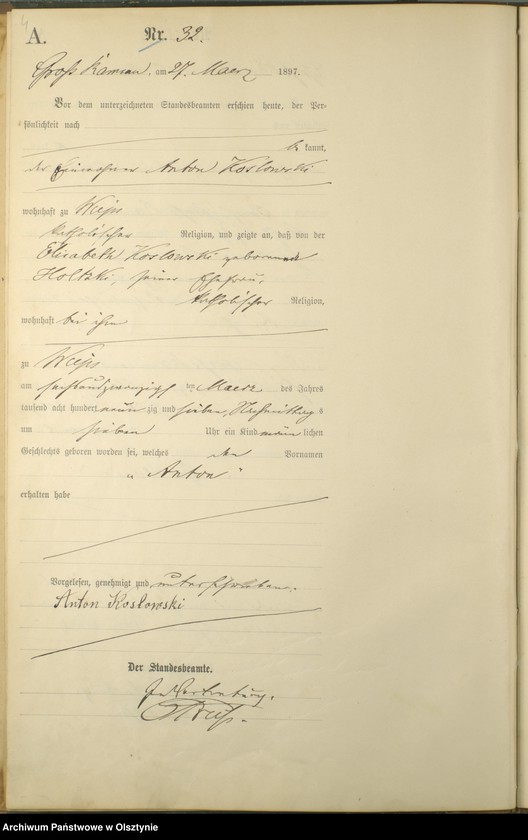 4
A.
Nr. 32.
Groß Ramsau, am 27. Maerz 1897.
Vor dem unterzeichneten Standesbeamten erschien heute, der Per-
sönlichkeit nach
be kannt,
der Einwohner Anton Koslowski
wohnhaft zu Wieps
katholischer Religion, und zeigte an, daß von der
Elisabeth Koslowski geborenen
seiner Ehefrau,
katholischer Religion,
wohnhaft bei ihm
zu Wieps
am sechsundzwanzigsten Maerz des Jahres
tausend acht hundert neun zig und sieben, Nachmittags
um sieben Uhr ein Kind männ lichen
Geschlechts geboren worden sei, welches den Vornamen
„Anton“
erhalten habe
Vorgelesen, genehmigt und unterschrieben.
Anton Kosłowski
Der Standesbeamte.
In Vertretung.
Archiwum Państwowe w Olsztynie